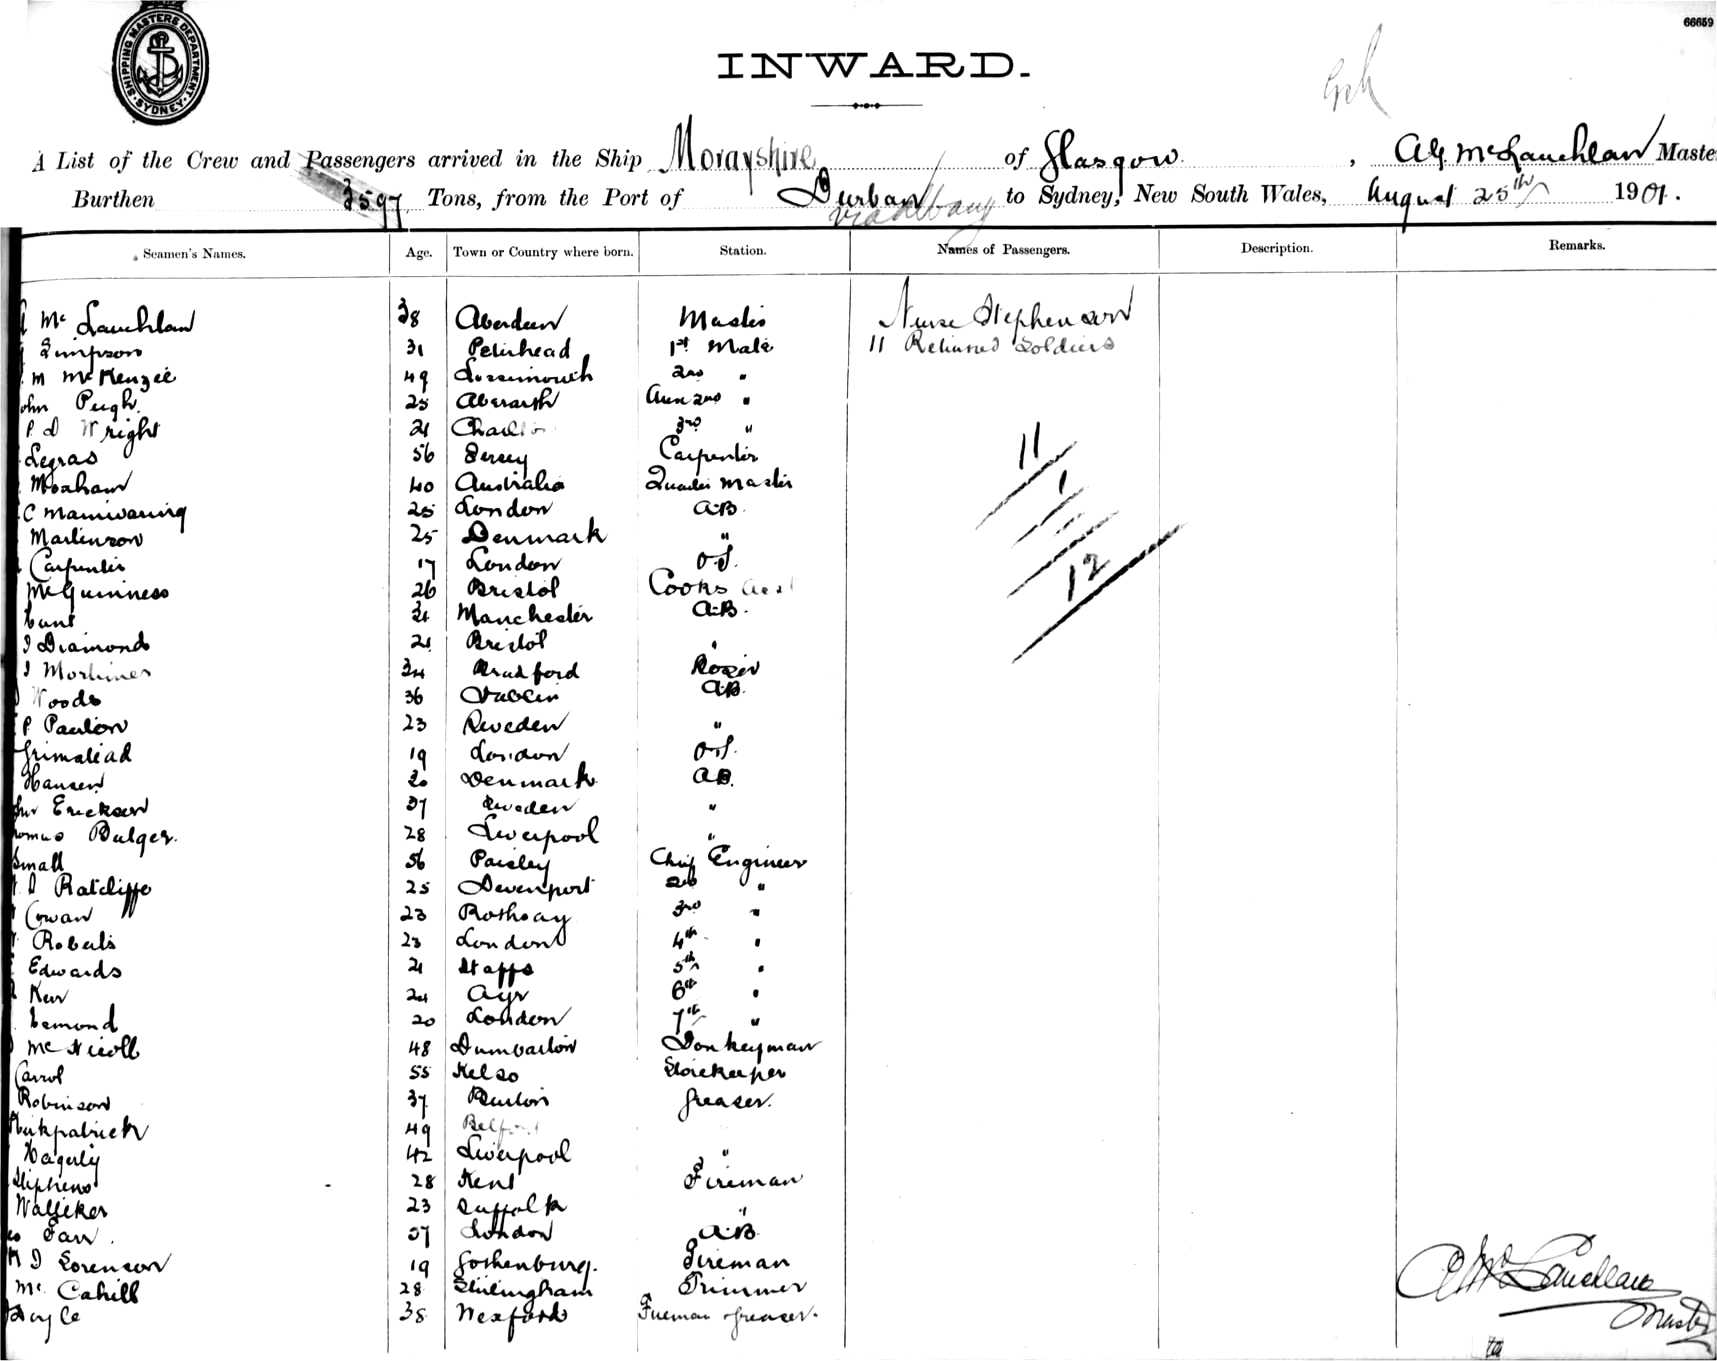 SHIPPING MASTERS DEPARTMENT SYDNEY
66659
INWARD.
A List of the Crew and Passengers arrived in the Ship Morayshire of Glasgow, A.G. McLauchlan Maste
Burthen 3597 Tons, from the Port of Durban via Albany to Sydney, New South Wales, August 25th 1901.
Seamen's Names. Age. Town or Country where born. Station. Names of Passengers. Description. Remarks.
Mc Lauchlan 38 Aberdeen Master Nurse Stephenson
Simpson 31 Peterhead 1st Mate 11 Returned Soldiers
M McKenzie 49 Lossiemouth 2nd "
ohn Pugh 25 Aberarth 2nd "
P D Wright 21 3rd "
Legras 56 Jersey Carpenter 11
40 Australia Quarter Master 1
C Mainwaring 25 London A.B.
Martinson 25 Denmark " 12
Carpenter 17 London O.S.
McGuinness 26 Bristol Cooks
Hunt 21 Manchester A.B.
Diamond 21 Bristol "
Mortimer 34 Bradford
Woods 36 Dublin A.B.
P Paulon 23 Sweden "
Grimstead 19 London O.S.
Hansen 20 Denmark A.B.
Erickson 37 Sweden "
homas Bulger. 28 Liverpool "
Small 56 Paisley Chief Engineer
Ratcliffe 25 Devenport 2nd "
Cowan 23 Rothsay 3rd "
Roberts 23 London 4th "
Edwards 21 Staffs 5th "
Kerr 24 Ayr 6th "
20 London 7th "
McNicoll 48 Dumbarton Donkeyman
Carrol 55 Kelso Storekeeper
Robinson 37 Greaser.
Kirkpatrick 49
Hagerty 42 Liverpool "
Stephens 28 Kent Fireman
Walliker 23 Suffolk "
Farr. 57 London A.B.
Sorenson 19 Gothenburg. Fireman
Mc Cahill 28 Trimmer
Doyle 38 Wexford Fireman Greaser.
A McLauchlan
Master